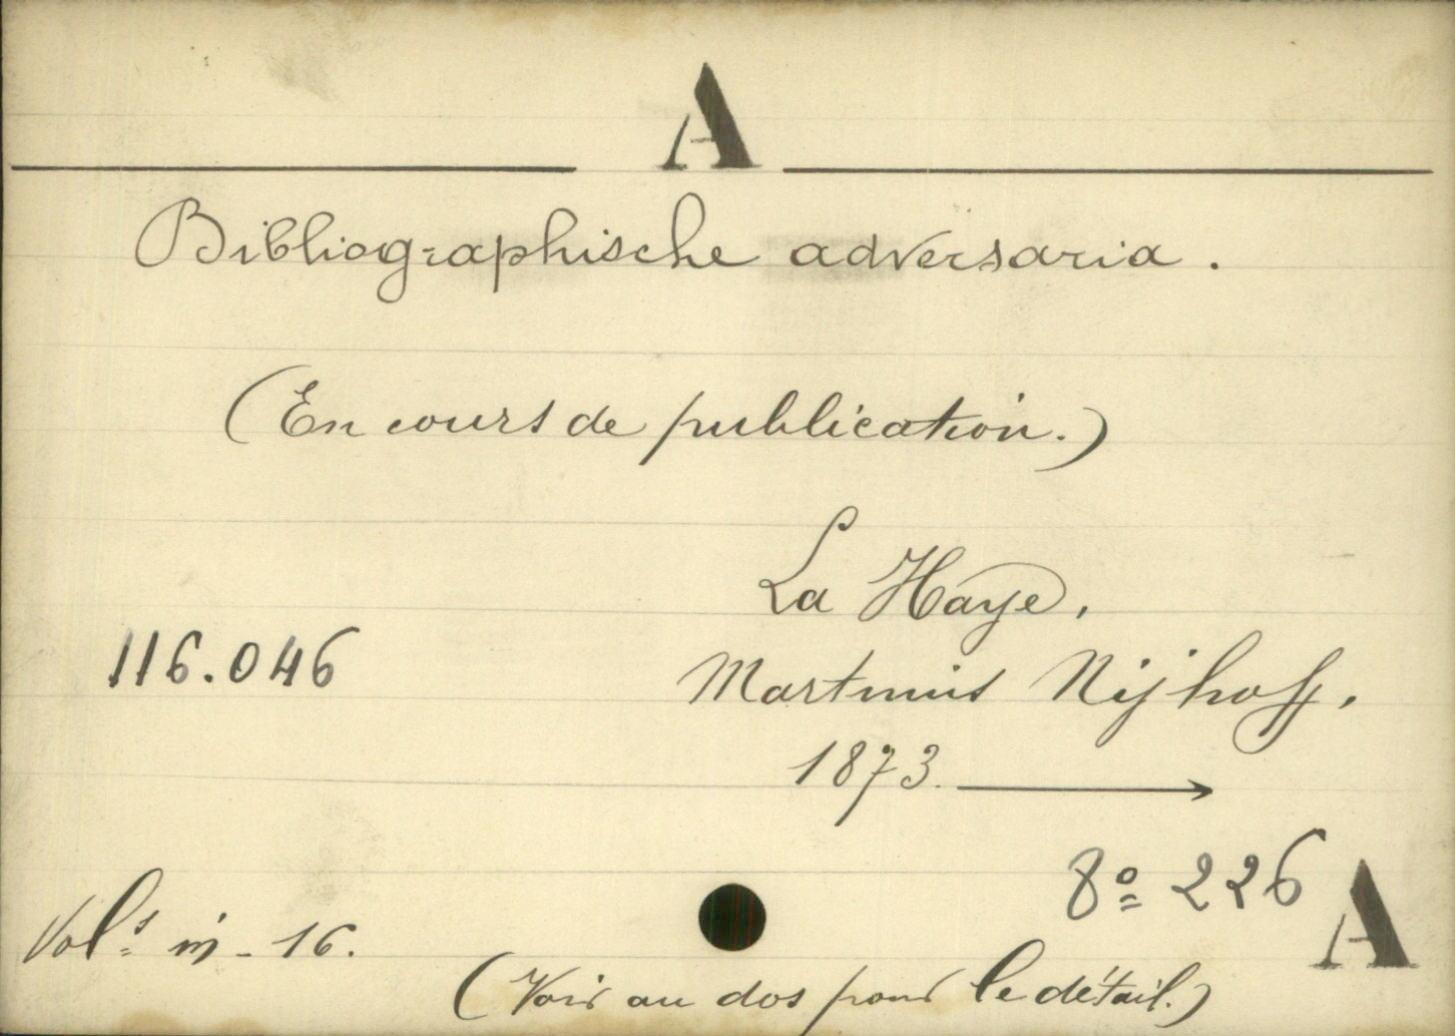 A
Bibliographische adversaria.
(En cours de publication.)
La Haye,
116.046
Martinus Nijhoff,
1873. →
8º 226 A
Vol.s in-16.
(Voir au dos pour le détail.)